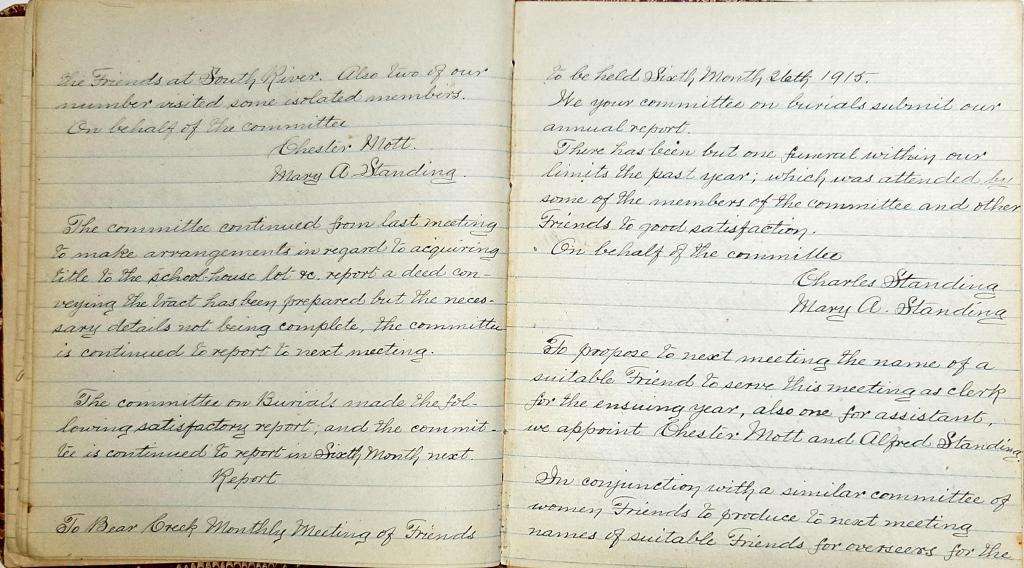 the Friends at South River. Also two of our
number visited some isolated members.
On behalf of the committee
Chester Mott.
Mary A. Standing.
The committee continued from last meeting
to make arrangements in regard to acquiring
title to the school-house lot &c. report a deed con-
veying the tract has been prepared but the neces-
sary details not being complete, the committee
is continued to report to next meeting.
The committee on Burials made the fol-
lowing satisfactory report, and the commit-
tee is continued to report in Sixth Month next.
Report
To Bear Creek Monthly Meeting of Friends
to be held Sixth Month 26th 1915.
We your committee on burials submit our
annual report.
There has been but one funeral within our
limits the past year; which was attended by
some of the members of the committee and other
Friends to good satisfaction.
On behalf of the committee
Charles Standing
Mary A. Standing
To propose to next meeting the name of a
suitable Friend to serve this meeting as clerk
for the ensuing year, also one for assistant,
we appoint Chester Mott and Alfred Standing.
In conjunction with a similar committee of
women Friends to produce to next meeting
names of suitable Friends for overseers for the